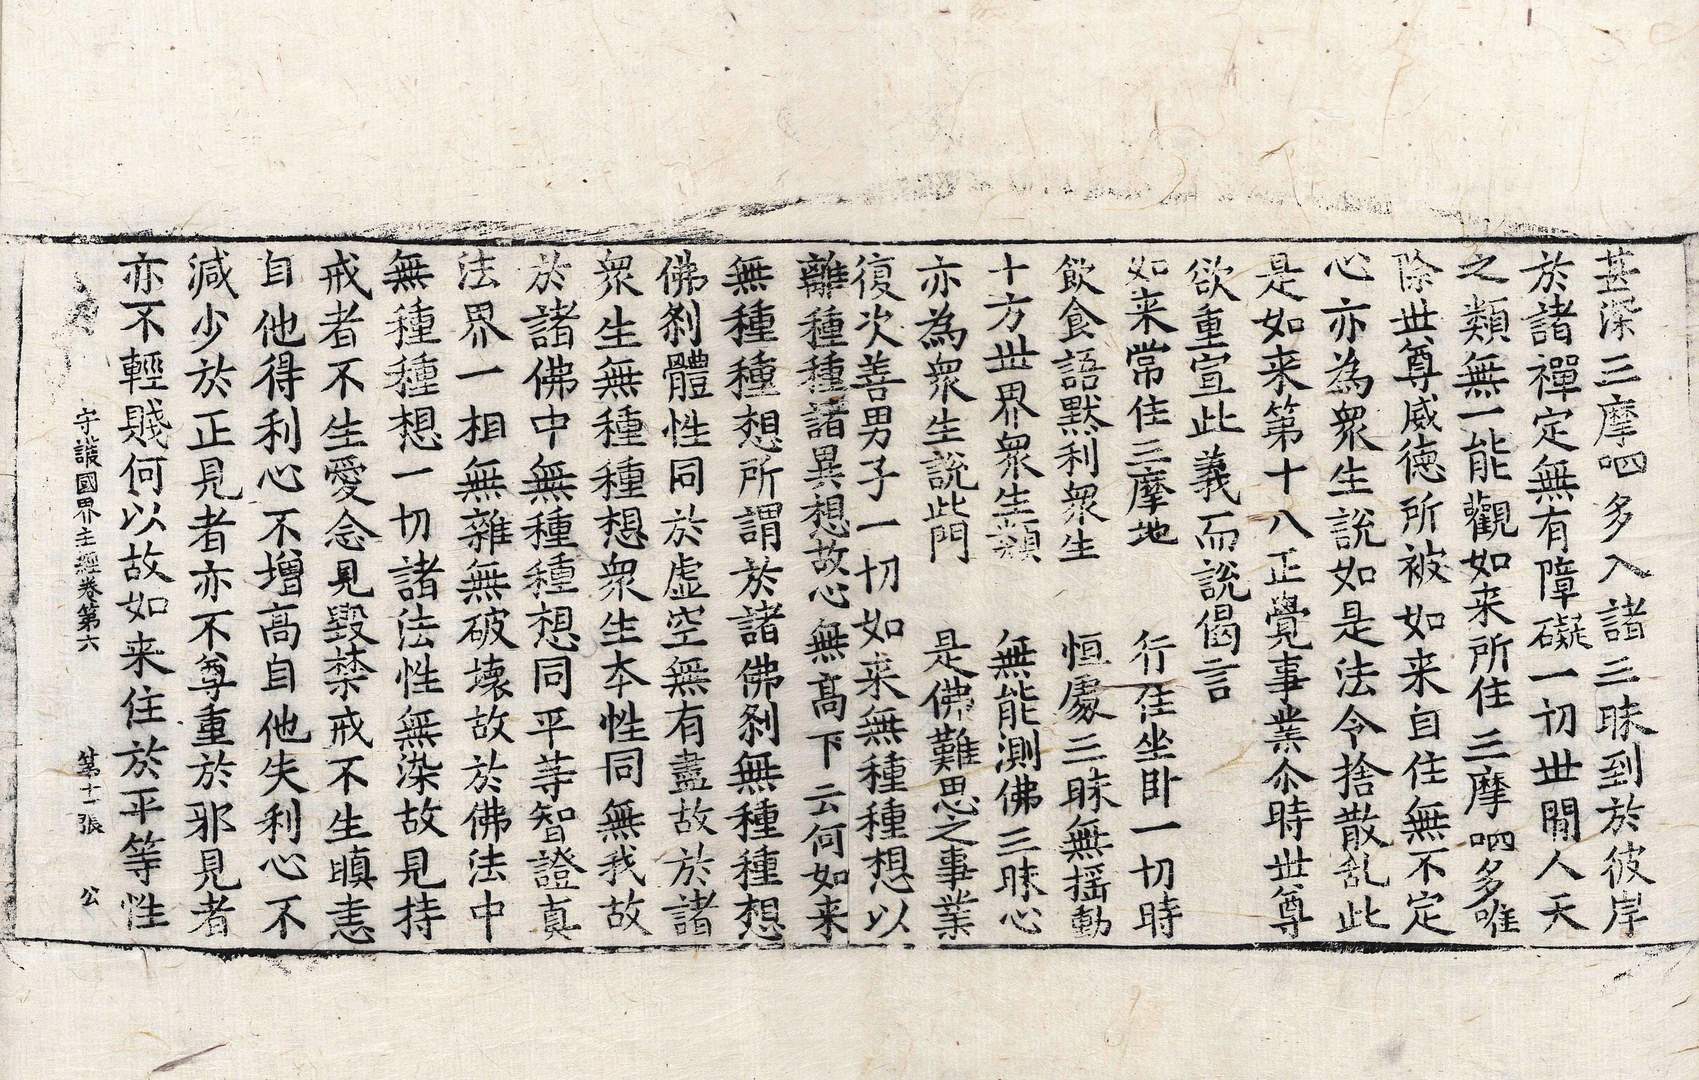 甚深三摩呬多入諸三昧到於彼岸
於諸禪定無有障礙一切世間人天
之類無一能觀如来所住三摩呬多唯
除世尊威德所被如来自住無不定
心亦為衆生說如是法令捨散乱此
是如来第十八正覺事業尒時世尊
欲重宣此義而說偈言
如来常住三摩地 行住坐卧一切時
飲食語默利衆生 恒處三昧無揺動
十方世界衆生類 無能測佛三昧心
亦為衆生說此門 是佛難思之事業
復次善男子一切如来無種種想以
離種種諸異想故心無高下云何如来
無種種想所謂於諸佛刹無種種想
佛刹體性同於虚空無有盡故於諸
衆生無種種想衆生本性同無我故
於諸佛中無種種想同平等智證真
法界一相無雜無破壞故於佛法中
無種種想一切諸法性無染故見持
戒者不生愛念見毀禁戒不生瞋恚
自他得利心不增高自他失利心不
減少於正見者亦不尊重於邪見者
亦不輕賤何以故如来住於平等性
守護國界主經卷第六 第十一張 公